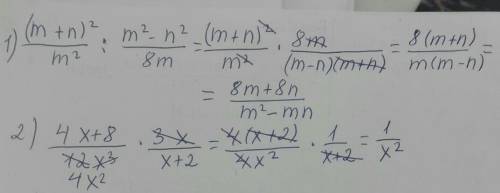 1) (m+n)²/m² : (m²-n²)/8m = (m+n)²/m² · 8m/((m-n)(m+n)) = 8(m+n)/(m(m-n)) =
= (8m+8n)/(m²-mn)
2) (4x+8)/(12x³) · (3x)/(x+2) = (4(x+2))/(4x²) · 1/(x+2) = 1/x²
4x²